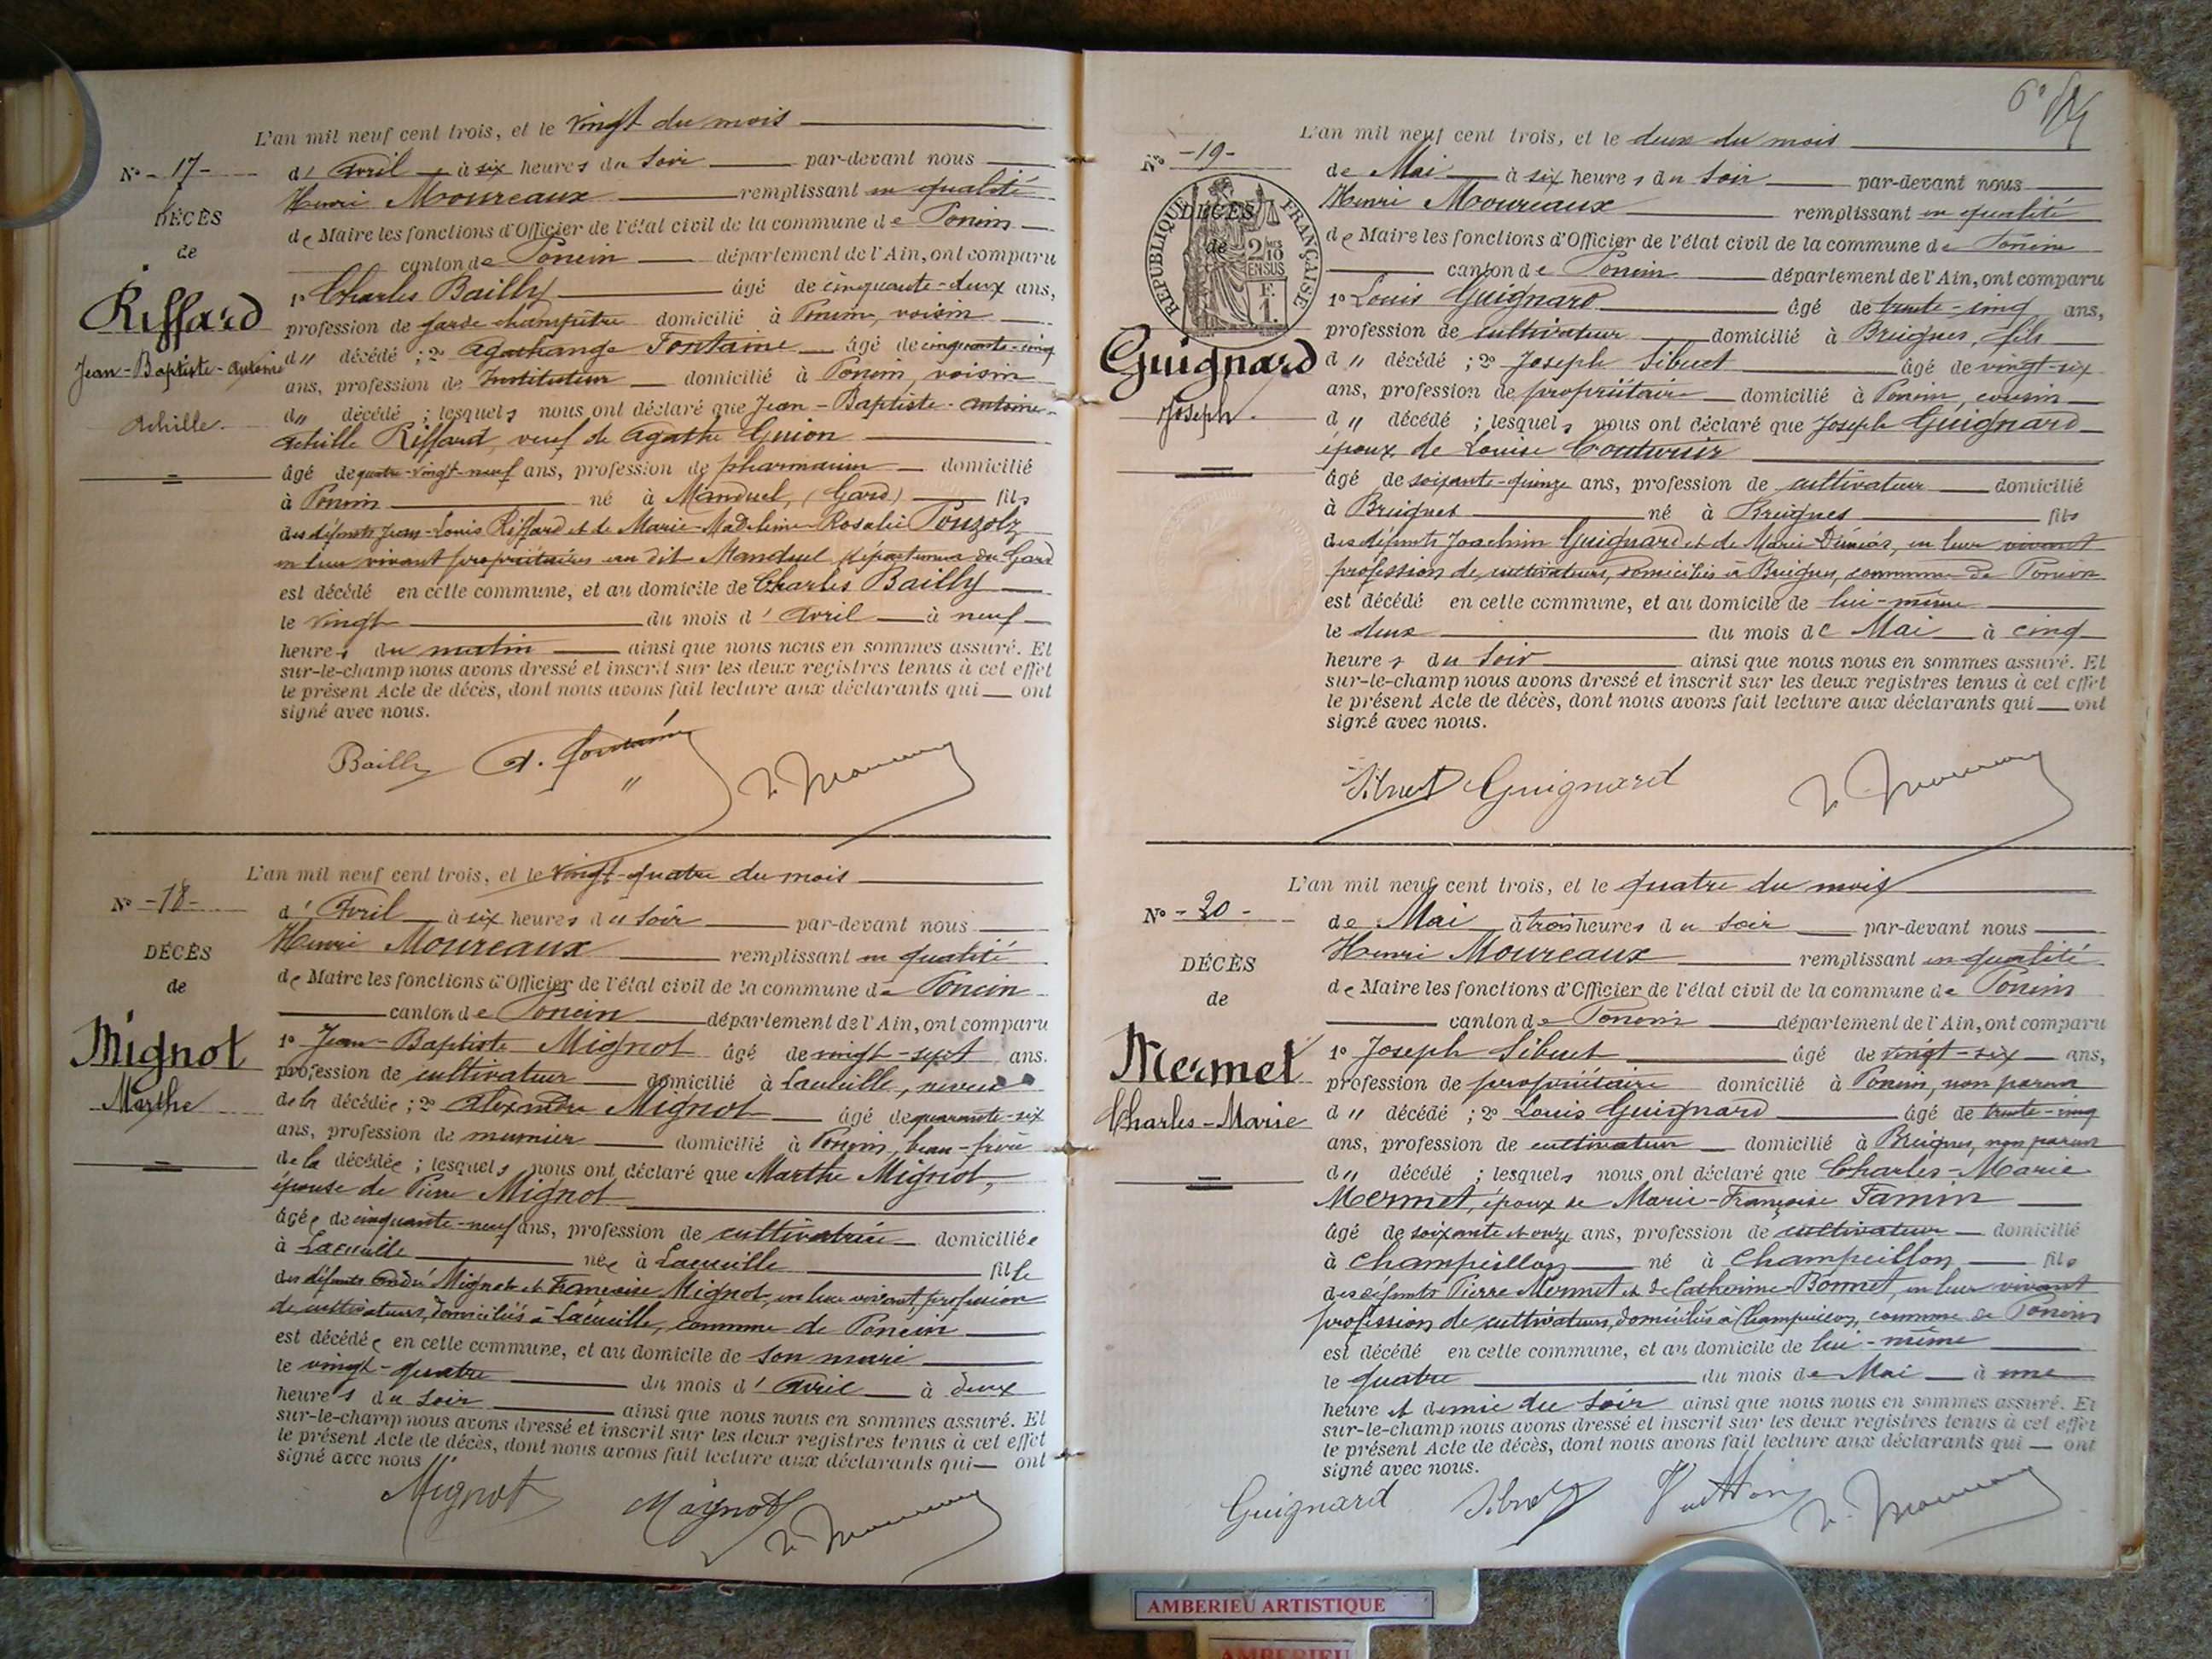 L'an mil neuf cent trois, et le vingt du mois
N° - 17 -
d' Avril à six heures du soir par-devant nous
Henri Moureaux remplissant en qualité
DÉCÈS
de Maire les fonctions d'Officier de l'état civil de la commune de Poncin
de
canton de Poncin département de l'Ain, ont comparu
1° Charles Bailly âgé de cinquante-deux ans,
Riffard
profession de garde champêtre domicilié à Poncin, voisin
Jean-Baptiste-Antoine
d" décédé ; 2° Agathange Fontaine âgé de cinquante-cinq
ans, profession de Instituteur domicilié à Poncin, voisin
Achille.
d" décédé ; lesquels nous ont déclaré que Jean-Baptiste-Antoine-
Achille Riffard, veuf de Agathe Guion
âgé de quatre-vingt-neuf ans, profession de pharmacien domicilié
à Poncin né à Manduel, (Gard) fils
des défunts Jean-Louis Riffard et de Marie-Madeleine-Rosalie Pouzolz
en leur vivant propriétaires au dit Manduel département du Gard
est décédé en cette commune, et au domicile de Charles Bailly
le vingt du mois d' Avril à neuf
heures du matin ainsi que nous nous en sommes assuré. Et
sur-le-champ nous avons dressé et inscrit sur les deux registres tenus à cet effet
le présent Acte de décès, dont nous avons fait lecture aux déclarants qui ont
signé avec nous.
Bailly A. Fontaine
L'an mil neuf cent trois, et le vingt-quatre du mois
N° - 18 -
d' Avril à six heures du soir par-devant nous
Henri Moureaux remplissant en qualité
DÉCÈS
de Maire les fonctions d'Officier de l'état civil de la commune de Poncin
de
canton de Poncin département de l'Ain, ont comparu
Mignot
1° Jean-Baptiste Mignot âgé de vingt-sept ans.
profession de cultivateur domicilié à Lacueille, neveu
Marthe
de la décédée ; 2° Alexandre Mignot âgé de quarante-six
ans, profession de meunier domicilié à Poncin, beau-frère
de la décédée ; lesquels nous ont déclaré que Marthe Mignot,
épouse de Pierre Mignot
âgée de cinquante-neuf ans, profession de cultivatrice domiciliée
à Lacueille née à Lacueille fille
des défunts André Mignot et Françoise Mignot, en leur vivant profession
de cultivateurs, domiciliés à Lacueille, commune de Poncin
est décédée en cette commune, et au domicile de son mari
le vingt-quatre du mois d' Avril à deux
heures du soir ainsi que nous nous en sommes assuré. Et
sur-le-champ nous avons dressé et inscrit sur les deux registres tenus à cet effet
le présent Acte de décès, dont nous avons fait lecture aux déclarants qui ont
signé avec nous
Mignot Mignot
L'an mil neuf cent trois, et le deux du mois
N° - 19 -
de Mai à six heures du soir par-devant nous
RÉPUBLIQUE FRANÇAISE
Henri Moureaux remplissant en qualité
DÉCÈS
de Maire les fonctions d'Officier de l'état civil de la commune de Poncin
de
canton de Poncin département de l'Ain, ont comparu
1° Louis Guignard âgé de trente-cinq ans,
profession de cultivateur domicilié à Breignes, fils
Guignard
d" décédé ; 2° Joseph Sibuet âgé de vingt-six
ans, profession de propriétaire domicilié à Poncin, cousin
Joseph.
d" décédé ; lesquels nous ont déclaré que Joseph Guignard
époux de Louise Couturier
âgé de soixante-quinze ans, profession de cultivateur domicilié
à Breignes né à Breignes fils
des défunts Joachim Guignard et de Marie en leur vivant
profession de cultivateurs, domiciliés à Breignes, commune de Poncin
est décédé en cette commune, et au domicile de lui-même
le deux du mois de Mai à cinq
heures du soir ainsi que nous nous en sommes assuré. Et
sur-le-champ nous avons dressé et inscrit sur les deux registres tenus à cet effet
le présent Acte de décès, dont nous avons fait lecture aux déclarants qui ont
signé avec nous.
Sibuet Guignard
L'an mil neuf cent trois, et le quatre du mois
N° - 20 -
de Mai à trois heures du soir par-devant nous
Henri Moureaux remplissant en qualité
DÉCÈS
de Maire les fonctions d'Officier de l'état civil de la commune de Poncin
de
canton de Poncin département de l'Ain, ont comparu
Mermet
1° Joseph Sibuet âgé de vingt-six ans,
profession de propriétaire domicilié à Poncin, non parent
Charles-Marie
d" décédé ; 2° Louis Guignard âgé de trente-cinq
ans, profession de cultivateur domicilié à Breignes, non parent
d" décédé ; lesquels nous ont déclaré que Charles-Marie
Mermet, époux de Marie-Françoise Tamin
âgé de soixante et onze ans, profession de cultivateur domicilié
à Champeillon né à Champeillon fils
des défunts Pierre Mermet et de Catherine Bonnet, en leur vivant
profession de cultivateurs, domiciliés à Champeillon, commune de Poncin
est décédé en cette commune, et au domicile de lui-même
le quatre du mois de Mai à une
heure et demie du soir ainsi que nous nous en sommes assuré. Et
sur-le-champ nous avons dressé et inscrit sur les deux registres tenus à cet effet
le présent Acte de décès, dont nous avons fait lecture aux déclarants qui ont
signé avec nous.
Guignard Sibuet
AMBERIEU ARTISTIQUE
AMBERIEU